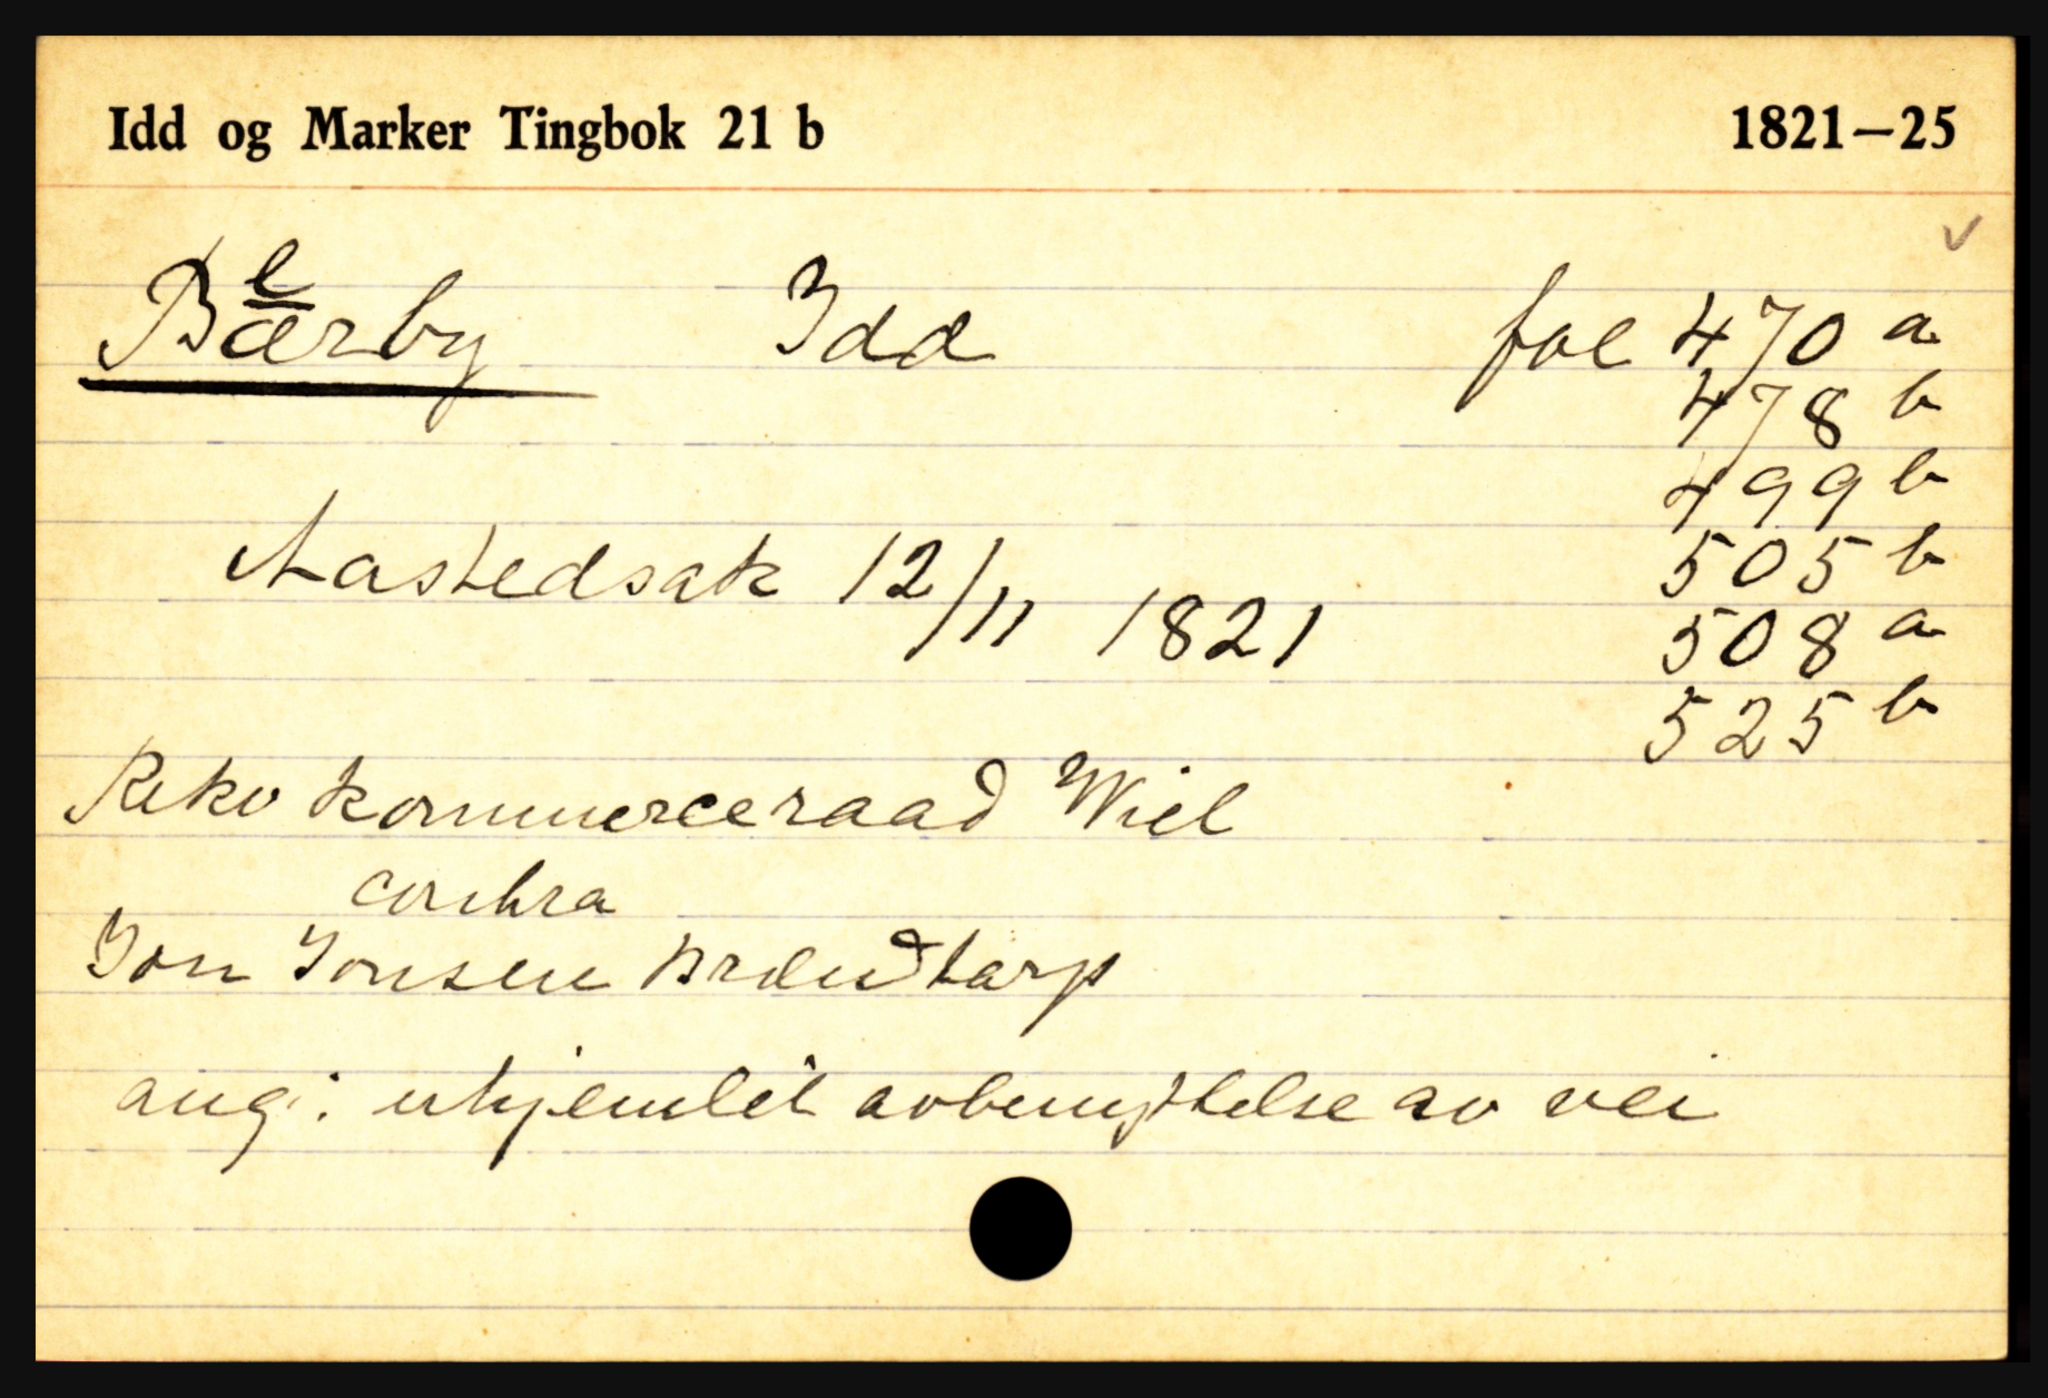 Idd og Marker Tingbok 21 b 1821—25
Bærby Idd fol 470 a
e
478 b
499 b
Aastedsak 12/11 1821 505 b
508 a
525 b
Rekv kommerceraad Wiel
contra
Jon Jonsen Brændtarp
ang: uhjemlet avbenyttelse av vei